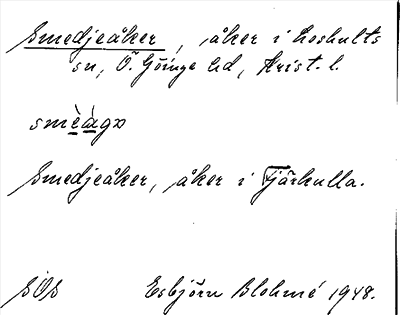 Smedjeåker, åker i Loshults
sn, Ö. Göinge hd, Krist. l.
smèàgə
Smedjeåker, åker i Fjärhulla.
SOS Esbjörn Blohmé 1948.